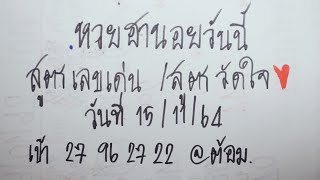 หวยฮานอยวันนี้
สูตรเลขเด่น /สูตรวัดใจ
วันที่ 15/11/64
เข้า 27 96 27 22 @ต้อม.